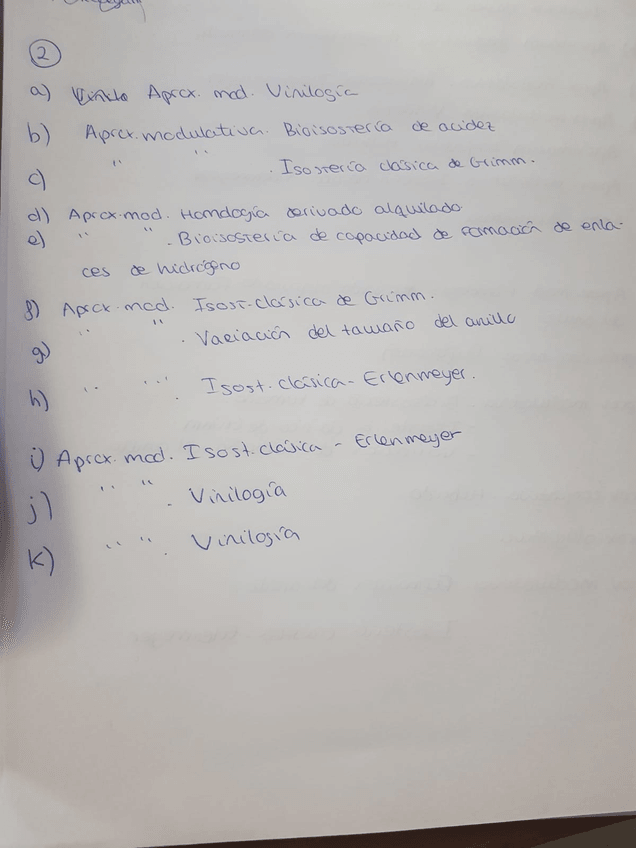 2
a) Aprox. mod. Vinilogía
b) Aprox. modulativa. Bioisostería de acidez
c) " " . Isostería clásica de Grimm.
d) Aprox. mod. Homología derivado alquilado
e) " " . Bioisostería de capacidad de formación de enla-
ces de hidrógeno
f) Aprox. mod. Isost. clásica de Grimm.
g) " " . Variación del tamaño del anillo
h) " " . Isost. clásica - Erlenmeyer.
i) Aprox. mod. Isost. clásica - Erlenmeyer
j) " " . Vinilogía
k) " " . Vinilogía